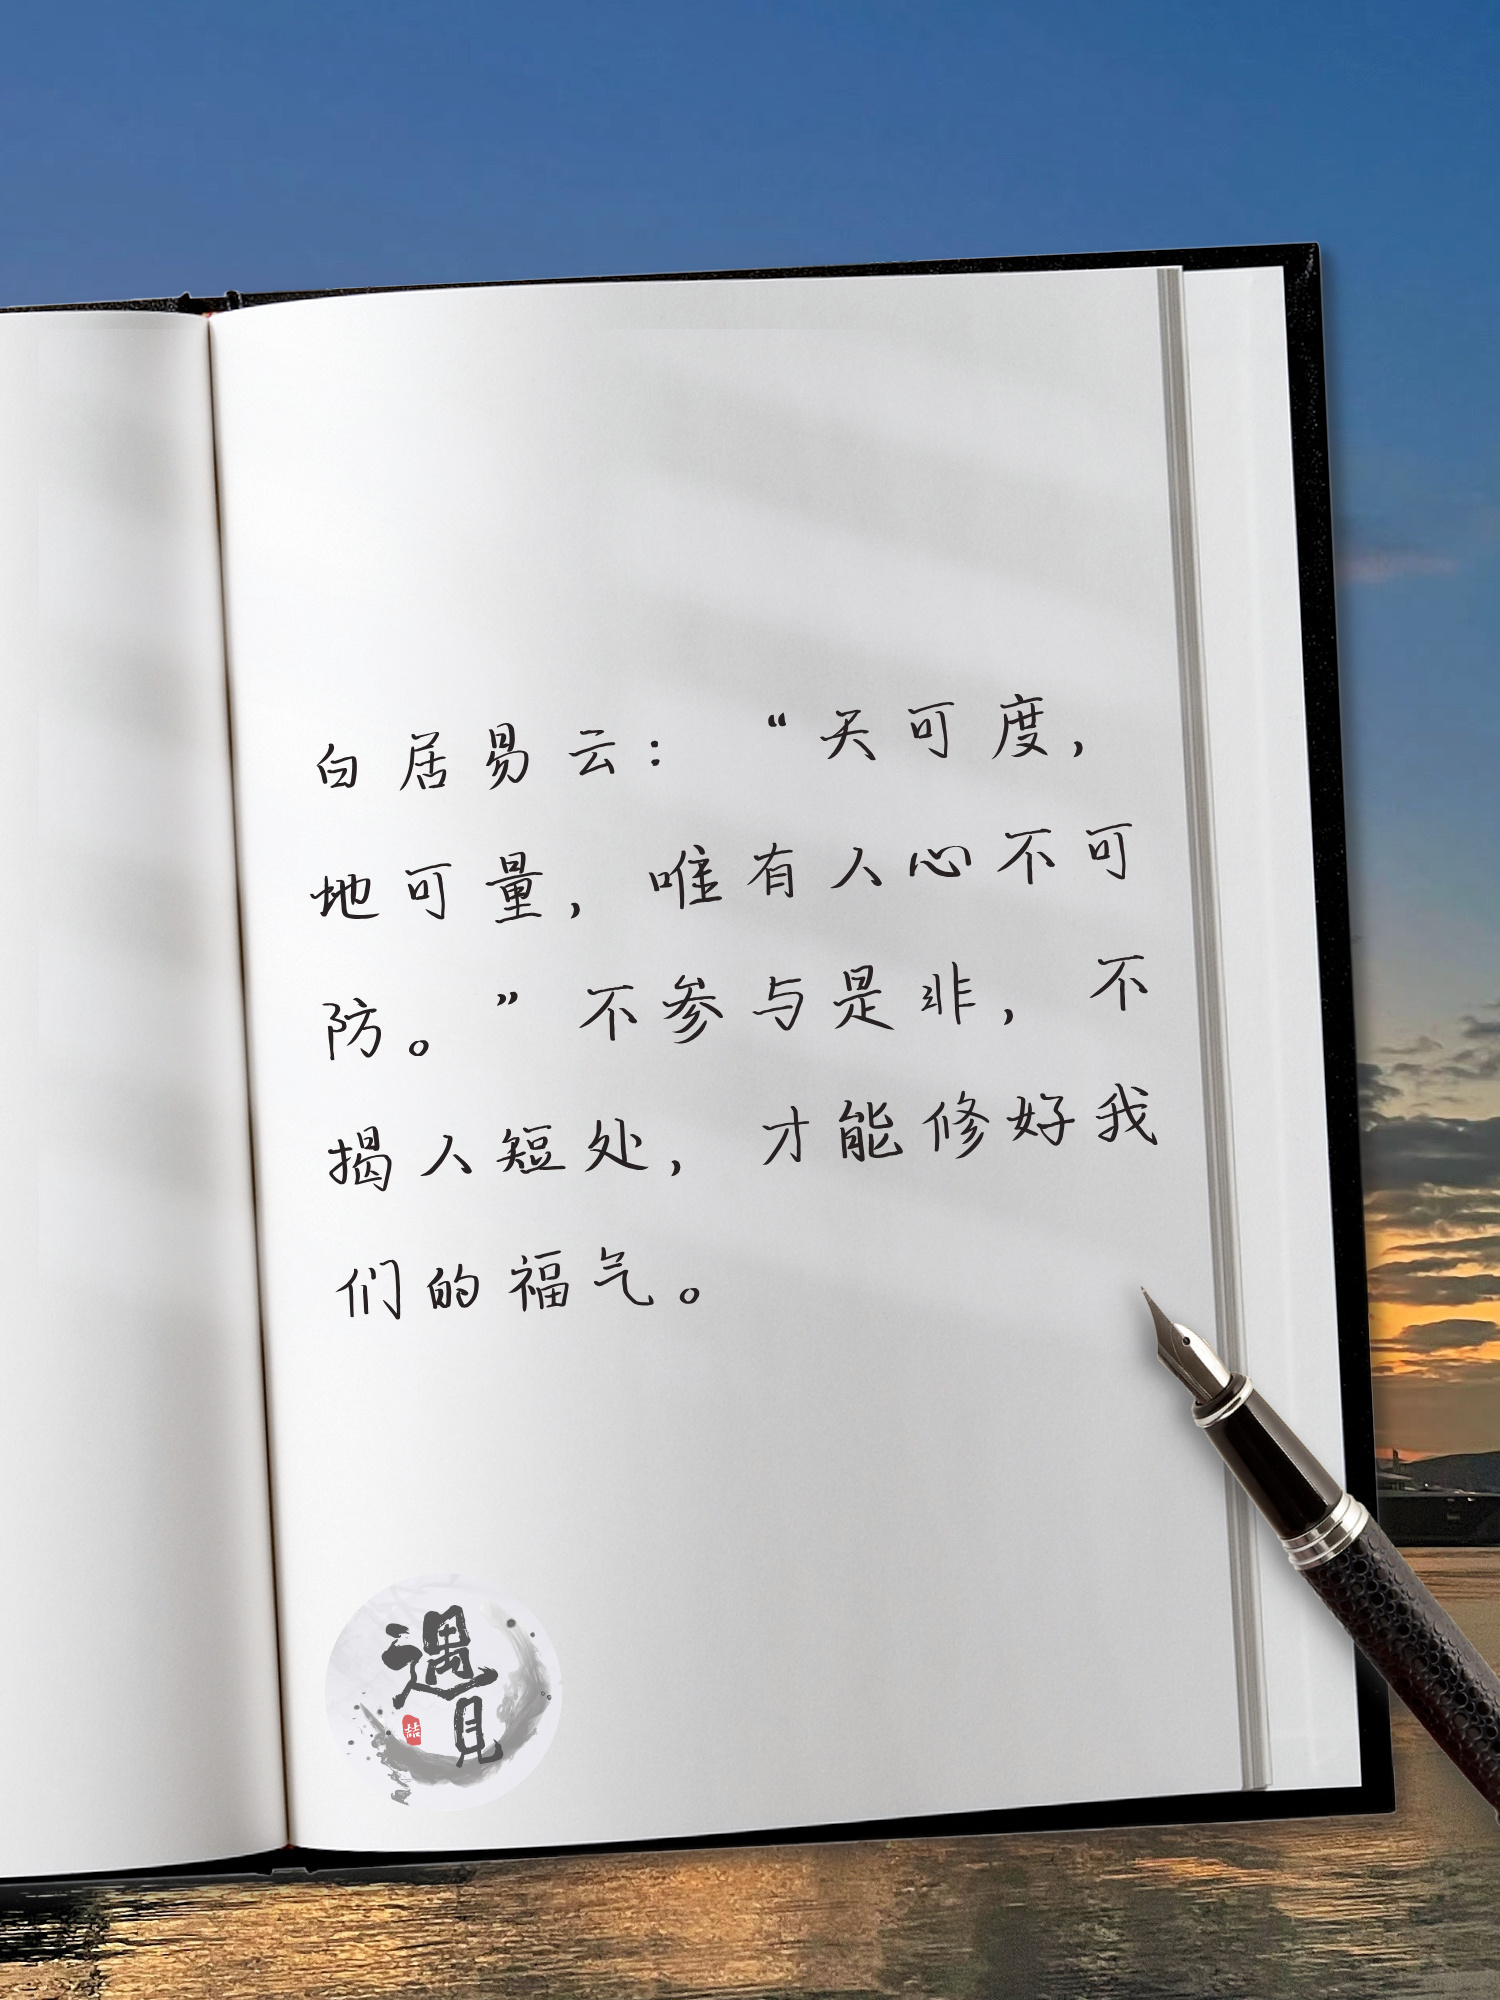 白居易云：“天可度，
地可量，唯有人心不可
防。”不参与是非，不
揭人短处，才能修好我
们的福气。
遇
見
喆